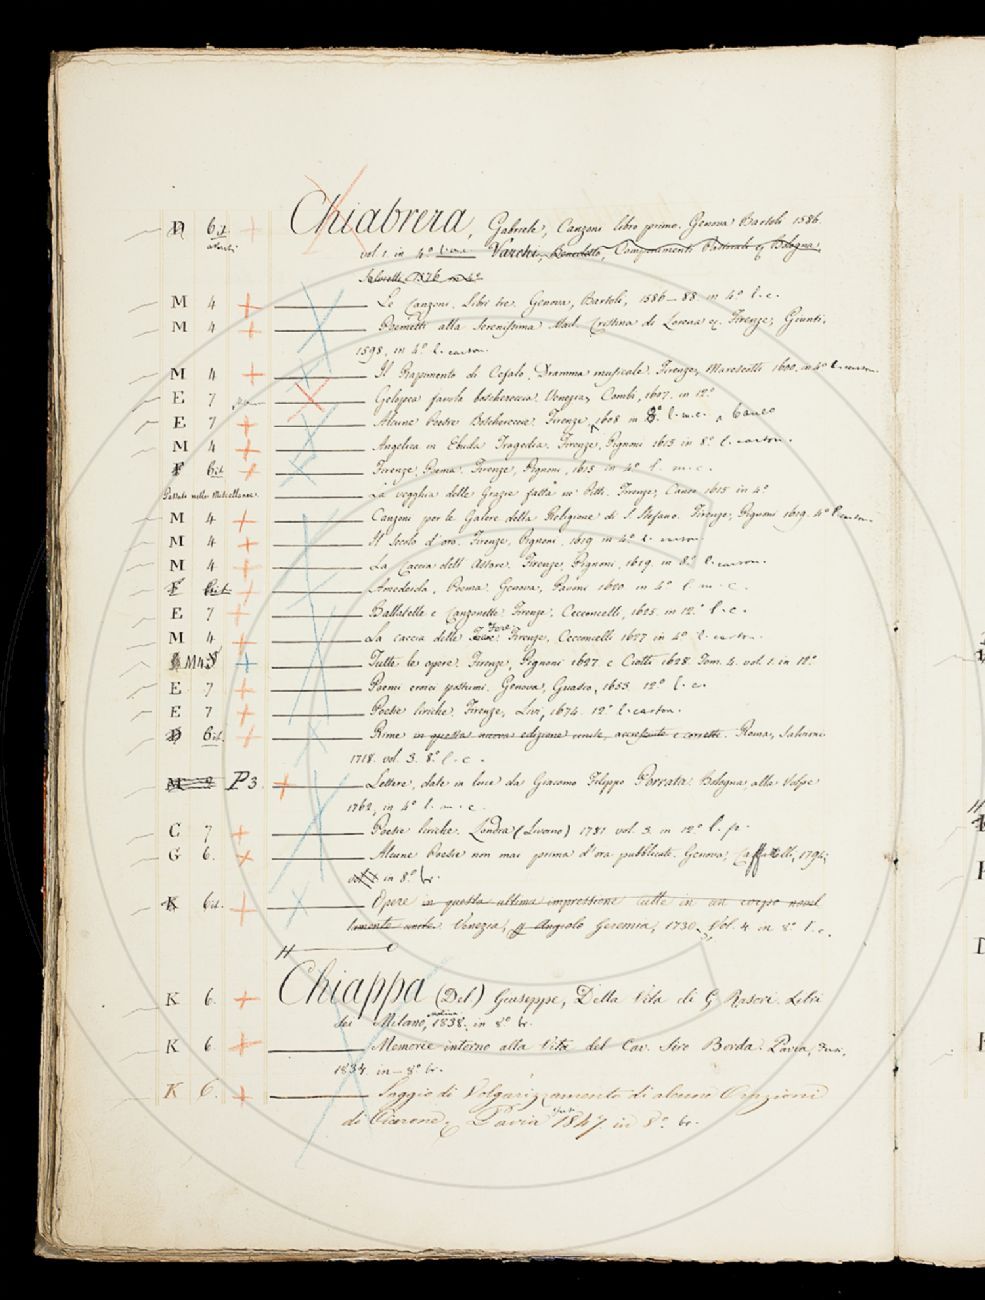 D 6 Chiabrera, Gabriele, Canzoni libro primo. Genova Bartoli 1586.
vol. 1. in 4º Varchi, Benedetto, Componimenti Pastorali Bologna,
1576 in 4º
M 4 Le Canzoni. Libri tre. Genova, Bartoli, 1586-88 in 4º l. c.
M 4 Poemetti alla Serenissima Mad. Cristina di Lorena Firenze, Giunti,
1598, in 4º l. carton.
M 4 Il Rapimento di Cefalo, Dramma musicale. Firenze, Marescotti 1600. in 4º l. carton.
E 7 Gelopea favola boschereccia. Venezia, Combi, 1607. in 12º
E 7 Alcune Poesie Boscherecce. Firenze, 1608 in 8º l. m. c.
M 4 Angelica in Ebuda Tragedia. Firenze, Pignoni 1615 in 8º l. carton.
F 6 Firenze, Poema. Firenze, Pignoni, 1615 in 4º l. m. c.
Passato nelle Miscellanee. La vegghia delle Grazie fatta ne' Pitti. Firenze, 1615 in 4º
M 4 Canzoni per le Galere della Religione di S. Stefano. Firenze, Pignoni 1619. 4º l. carton.
M 4 Il Secolo d'oro. Firenze, Pignoni, 1619 in 4º l. carton.
M 4 La Caccia dell' Astore. Firenze, Pignoni, 1619. in 8º l. carton.
F Amedeida, Poema. Genova, Pavoni 1620 in 4º l. m. c.
E 7 Ballatelle e Canzonette Firenze, Cecconcelli, 1625 in 12.º l. c.
M 4 La caccia delle Fere Firenze, Cecconcelli 1627 in 4º l. carton.
M 4 Tutte le opere. Firenze, Pignoni 1627 e Ciotti 1628. Tom. 4. vol. 1. in 12º
E 7 Poemi eroici postumi. Genova, Guasco, 1653. 12º l. c.
E 7 Poesie liriche. Firenze, Livi, 1674. 12º l. carton.
D 6 Rime in questa nuova edizione unite, accresciute e corrette. Roma, Salvioni
1718. vol. 3. 8º l. c.
M 2 P 3. Lettere, date in luce da Giacomo Filippo Porrata. Bologna, alla Volpe
1762, in 4º l. m. c.
C 7 Poesie liriche. Londra (Livorno) 1781 vol. 3. in 12º l. p.
G 6. Alcune Poesie non mai prima d'ora pubblicate. Genova, Caffarelli, 1794,
in 8º br.
K 6 Opere in questa ultima impressione tutte in un corpo novel
lamente unite. Venezia, Angiolo Geremia, 1730. Vol. 4 in 8º l. c.
K 6. Chiappa (Del) Giuseppe, Della Vita di G. Rasori. Libri
sei Milano, 1838. in 8º br.
K 6. Memorie intorno alla Vita del Cav. Siro Borda. Pavia,
1834. in-8º br.
K 6. Saggio di Volgarizzamento di alcune Orazioni
di Cicerone. Pavia 1847 in 8º br.